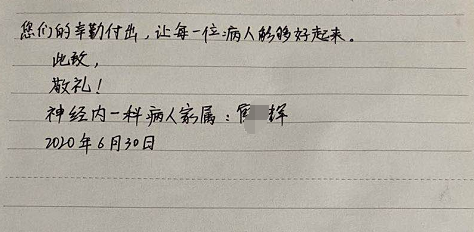 您们的辛勤付出，让每一位病人能够好起来。
此致，
敬礼！
神经内一科病人家属：辉
2020年6月30日